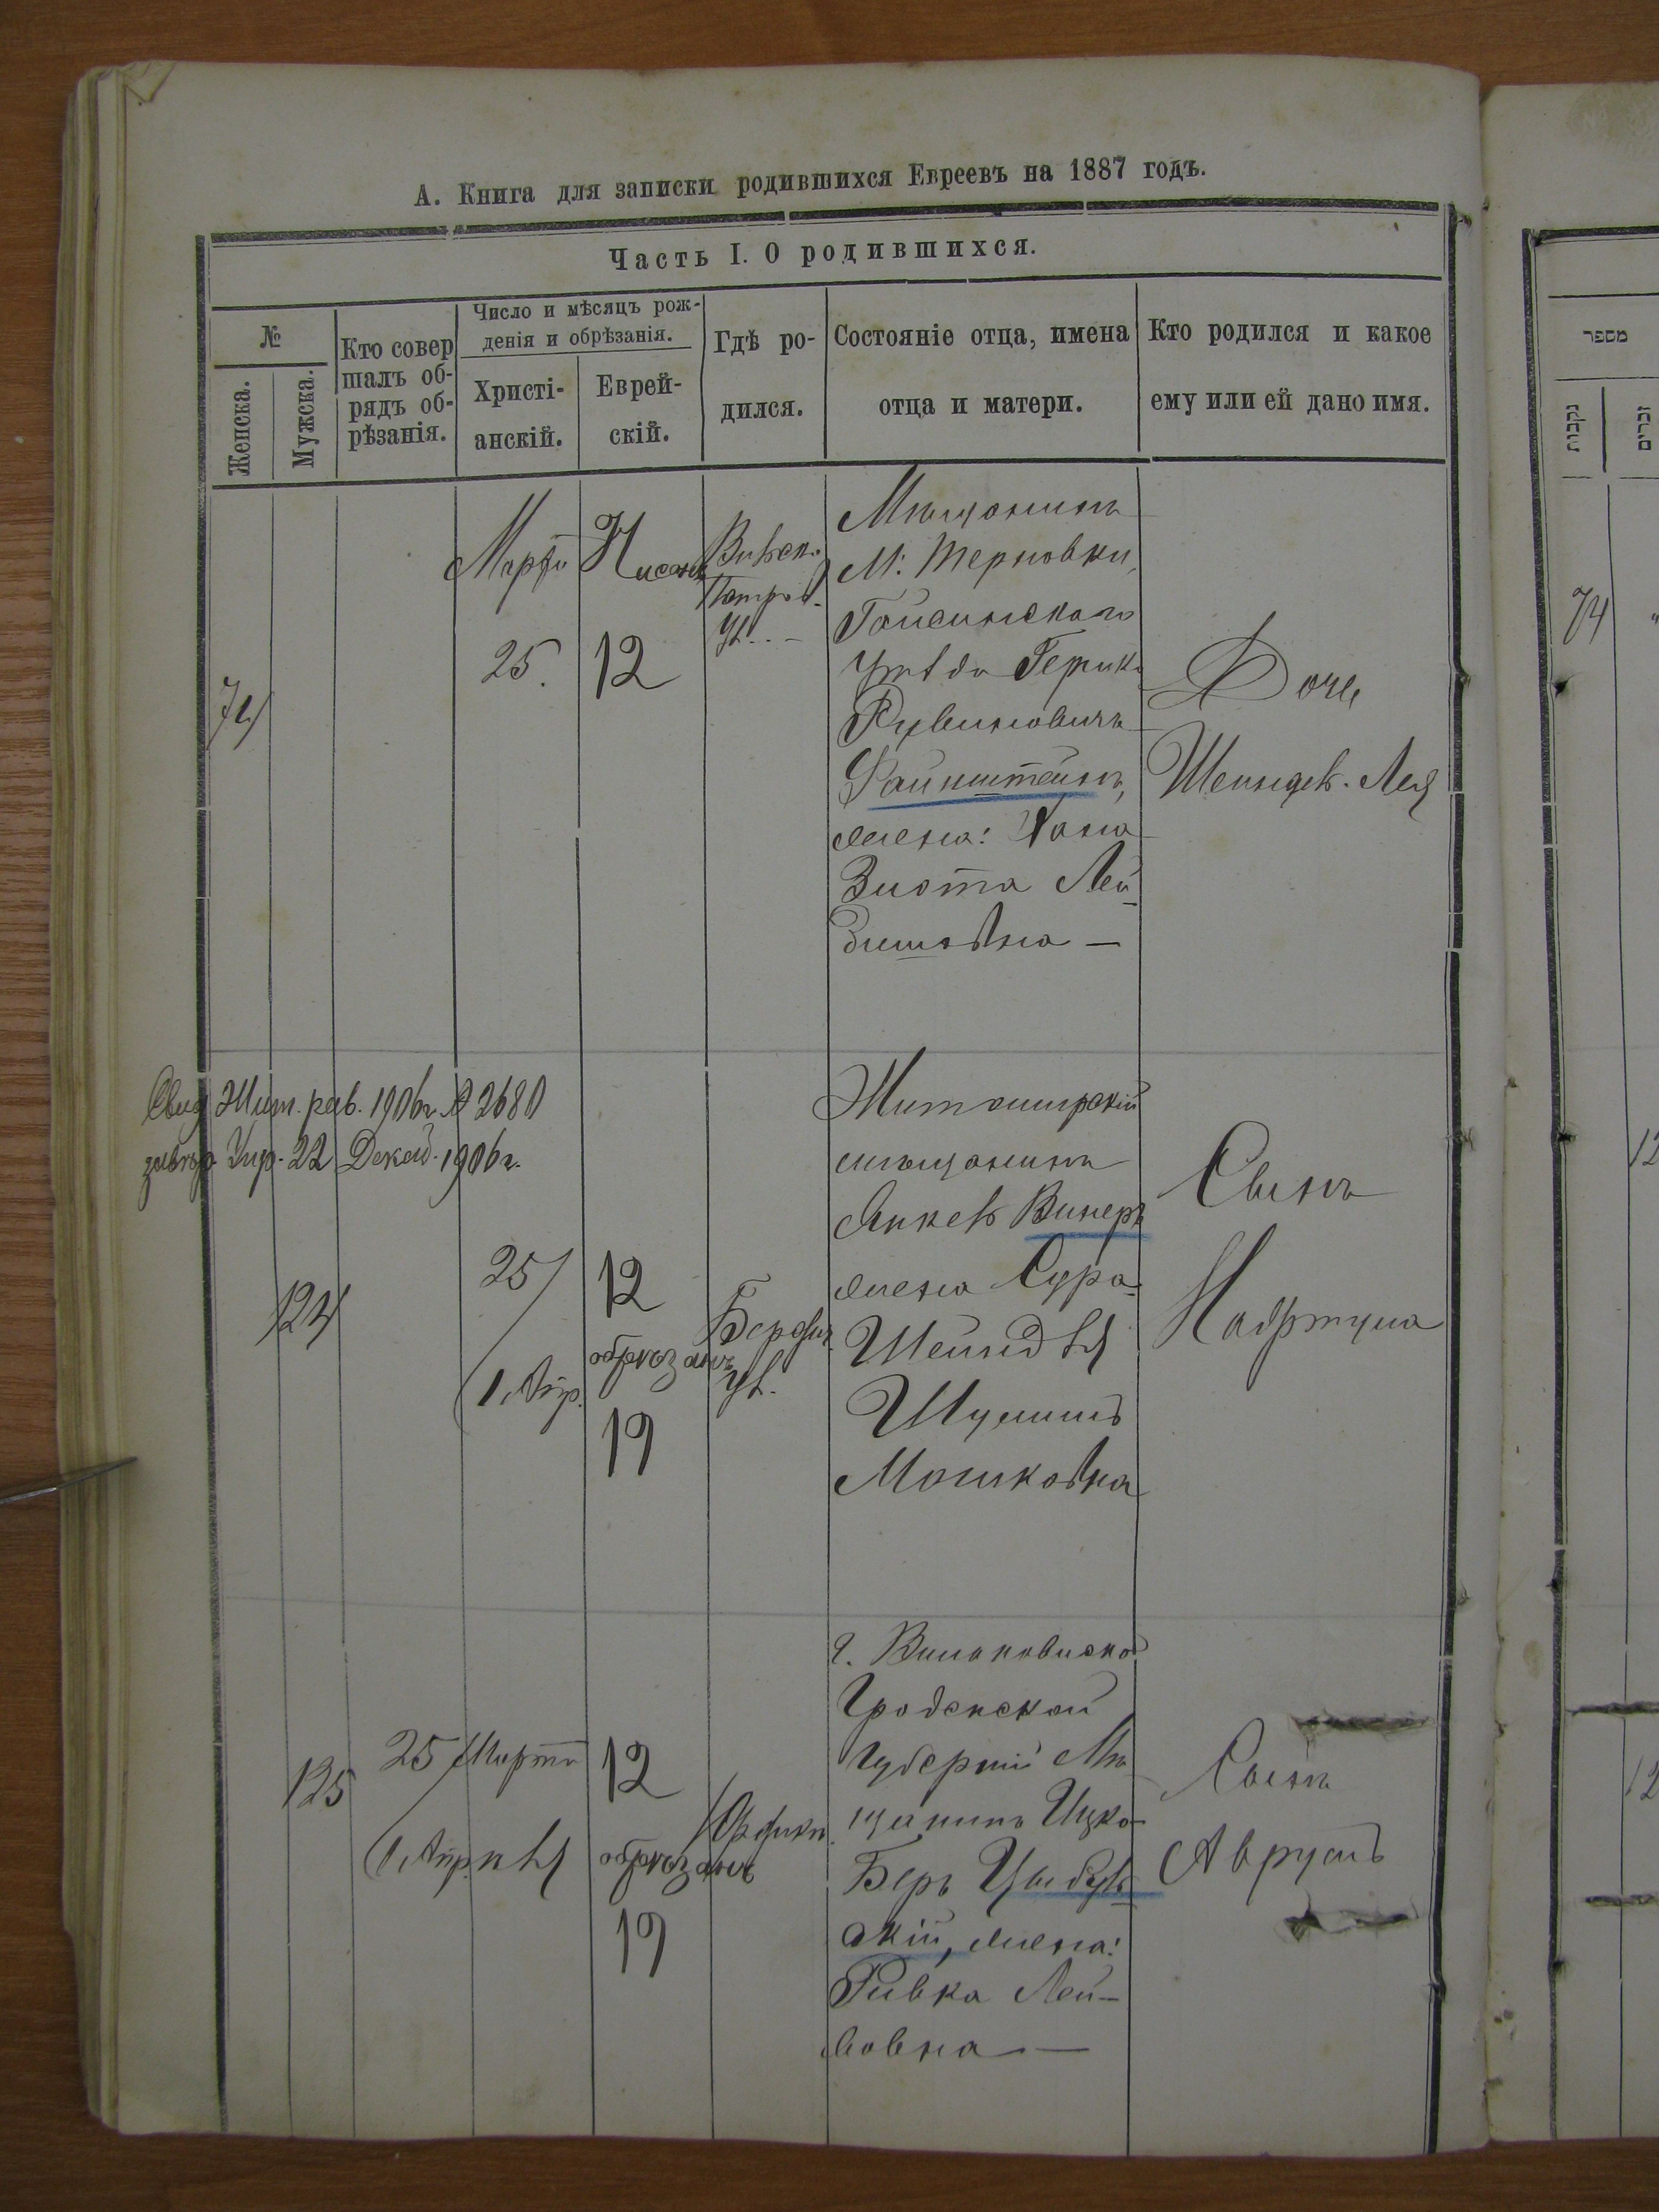 А. Книга для записки родившихся Евреевъ на 1887 годъ.
Часть I. О родившихся.
№
Женска.
Мужска.
Кто совер
шалъ об-
рядъ об-
рѣзанія.
Число и мѣсяцъ рож-
денія и обрѣзанія.
Христі-
анскій.
Еврей-
скій.
Гдѣ ро-
дился.
Состояніе отца, имена
отца и матери.
Кто родился и какое
ему или ей дано имя.
74
Марта
25.
Нисана
12
Ул.
Мѣщанинъ
М. Терновки,
Гайсинскаго
уѣзда
Рувиновичъ
Файнштейнъ,
жена: Хана
Злота Лей
Дочь
Шейндль-Лея
Свид. Жит. рав. 1906 г. № 2680
Упр. 22 Декаб. 1906 г.
124
25/
1 Апр.
12
обрѣзанъ
19
Бердич.
ул.
Житомирскій
мѣщанинъ
Янкель Винеръ
жена Сура-
Шейндля
Мошковна
Сынъ
125
25 Марта
1 Апрѣля
12
обрѣзанъ
19
Гродненской
Губерніи Мѣ
щанинъ Ицко-
Беръ Цыбуль
скій, жена:
Ривка Лей-
бовна —
Сынъ
Аврумъ
מספר
נקבות
זכרים
74
12
12